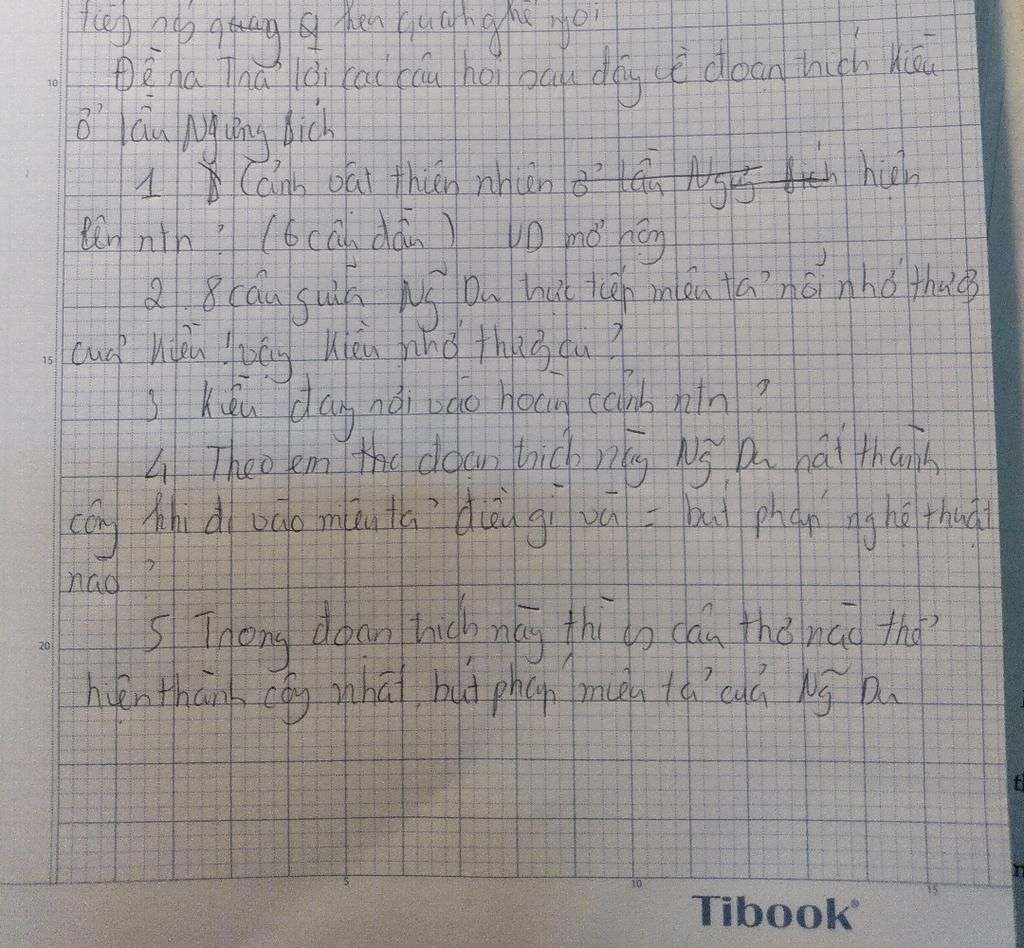 quang Q hen quanh ghế ngồi
Đề ra Trả lời các câu hỏi sau đây về đoan trích Kiều
ở lầu Ngưng Bích
1 Cảnh vât thiên nhiên ở lầu Ngưg Bích hiện
lên ntn ? (6 câu đầu) VD mở rộng
2. 8 câu giữa Ng̃ Du trực tiếp miêu tả nỗi nhớ thươg
của Kiều ! vậy Kiều nhớ thươg ai ?
3 Kiều đag rơi vào hoàn cảnh ntn ?
4 Theo em thơ đoạn trích này Ng̃ Du rất thành
công khi đi vào miêu tả điều gì và = bút pháp nghệ thuật
nào ?
5 Trong đoan trích này thì câu thơ nào thể
hiện thành công nhất bút pháp miêu tả của Ng̃ Du
10
15
20
5
10
15
Tibook